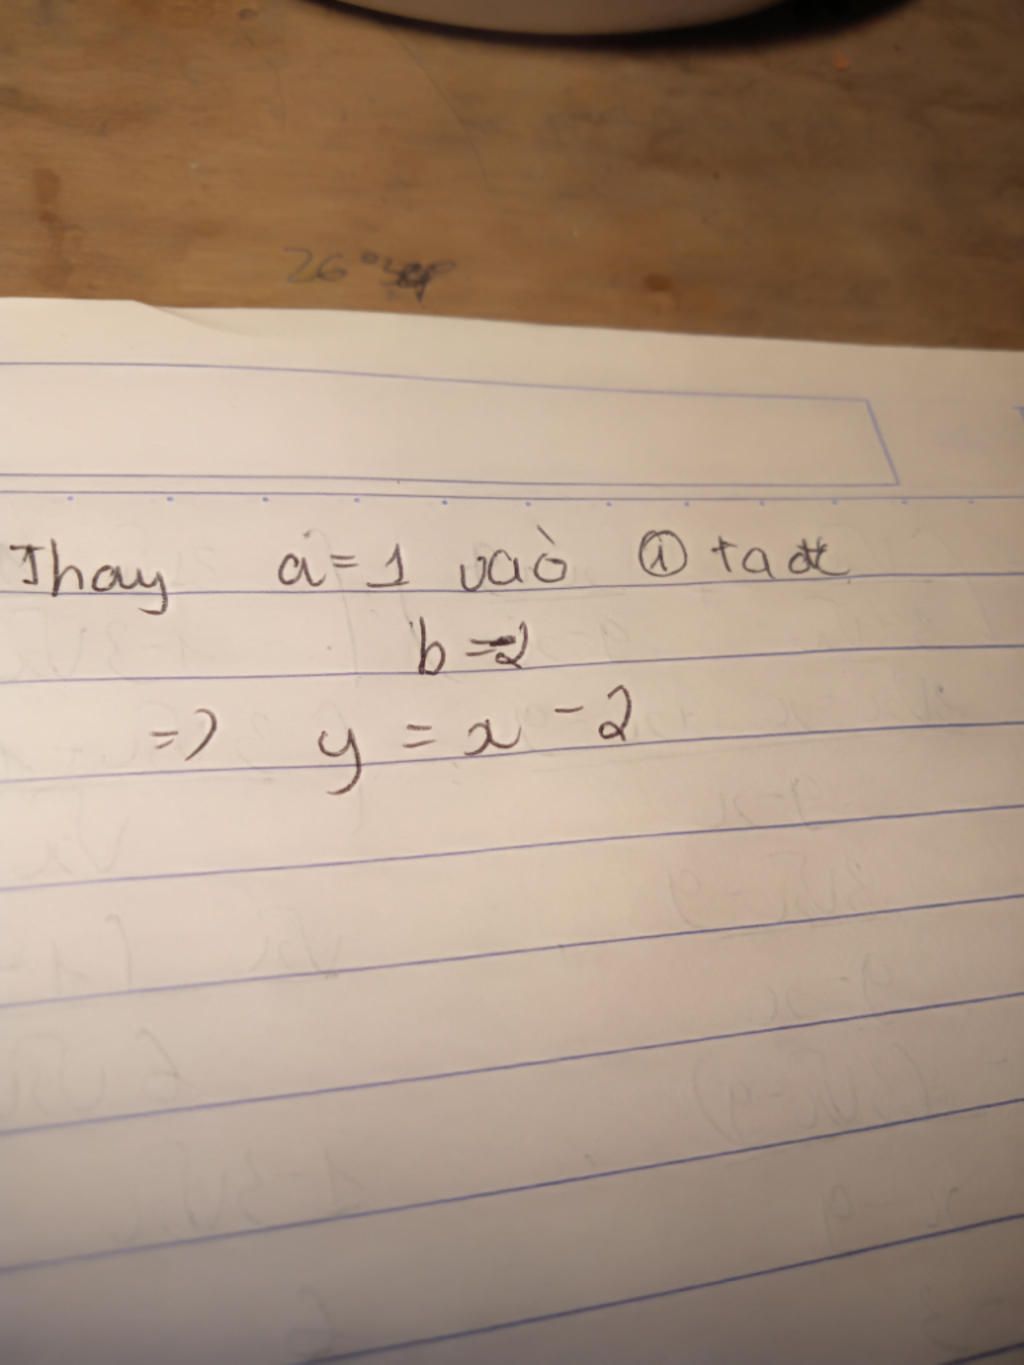 26°
Thay a=1 vào ① ta đc
b=-2
=> y = x - 2